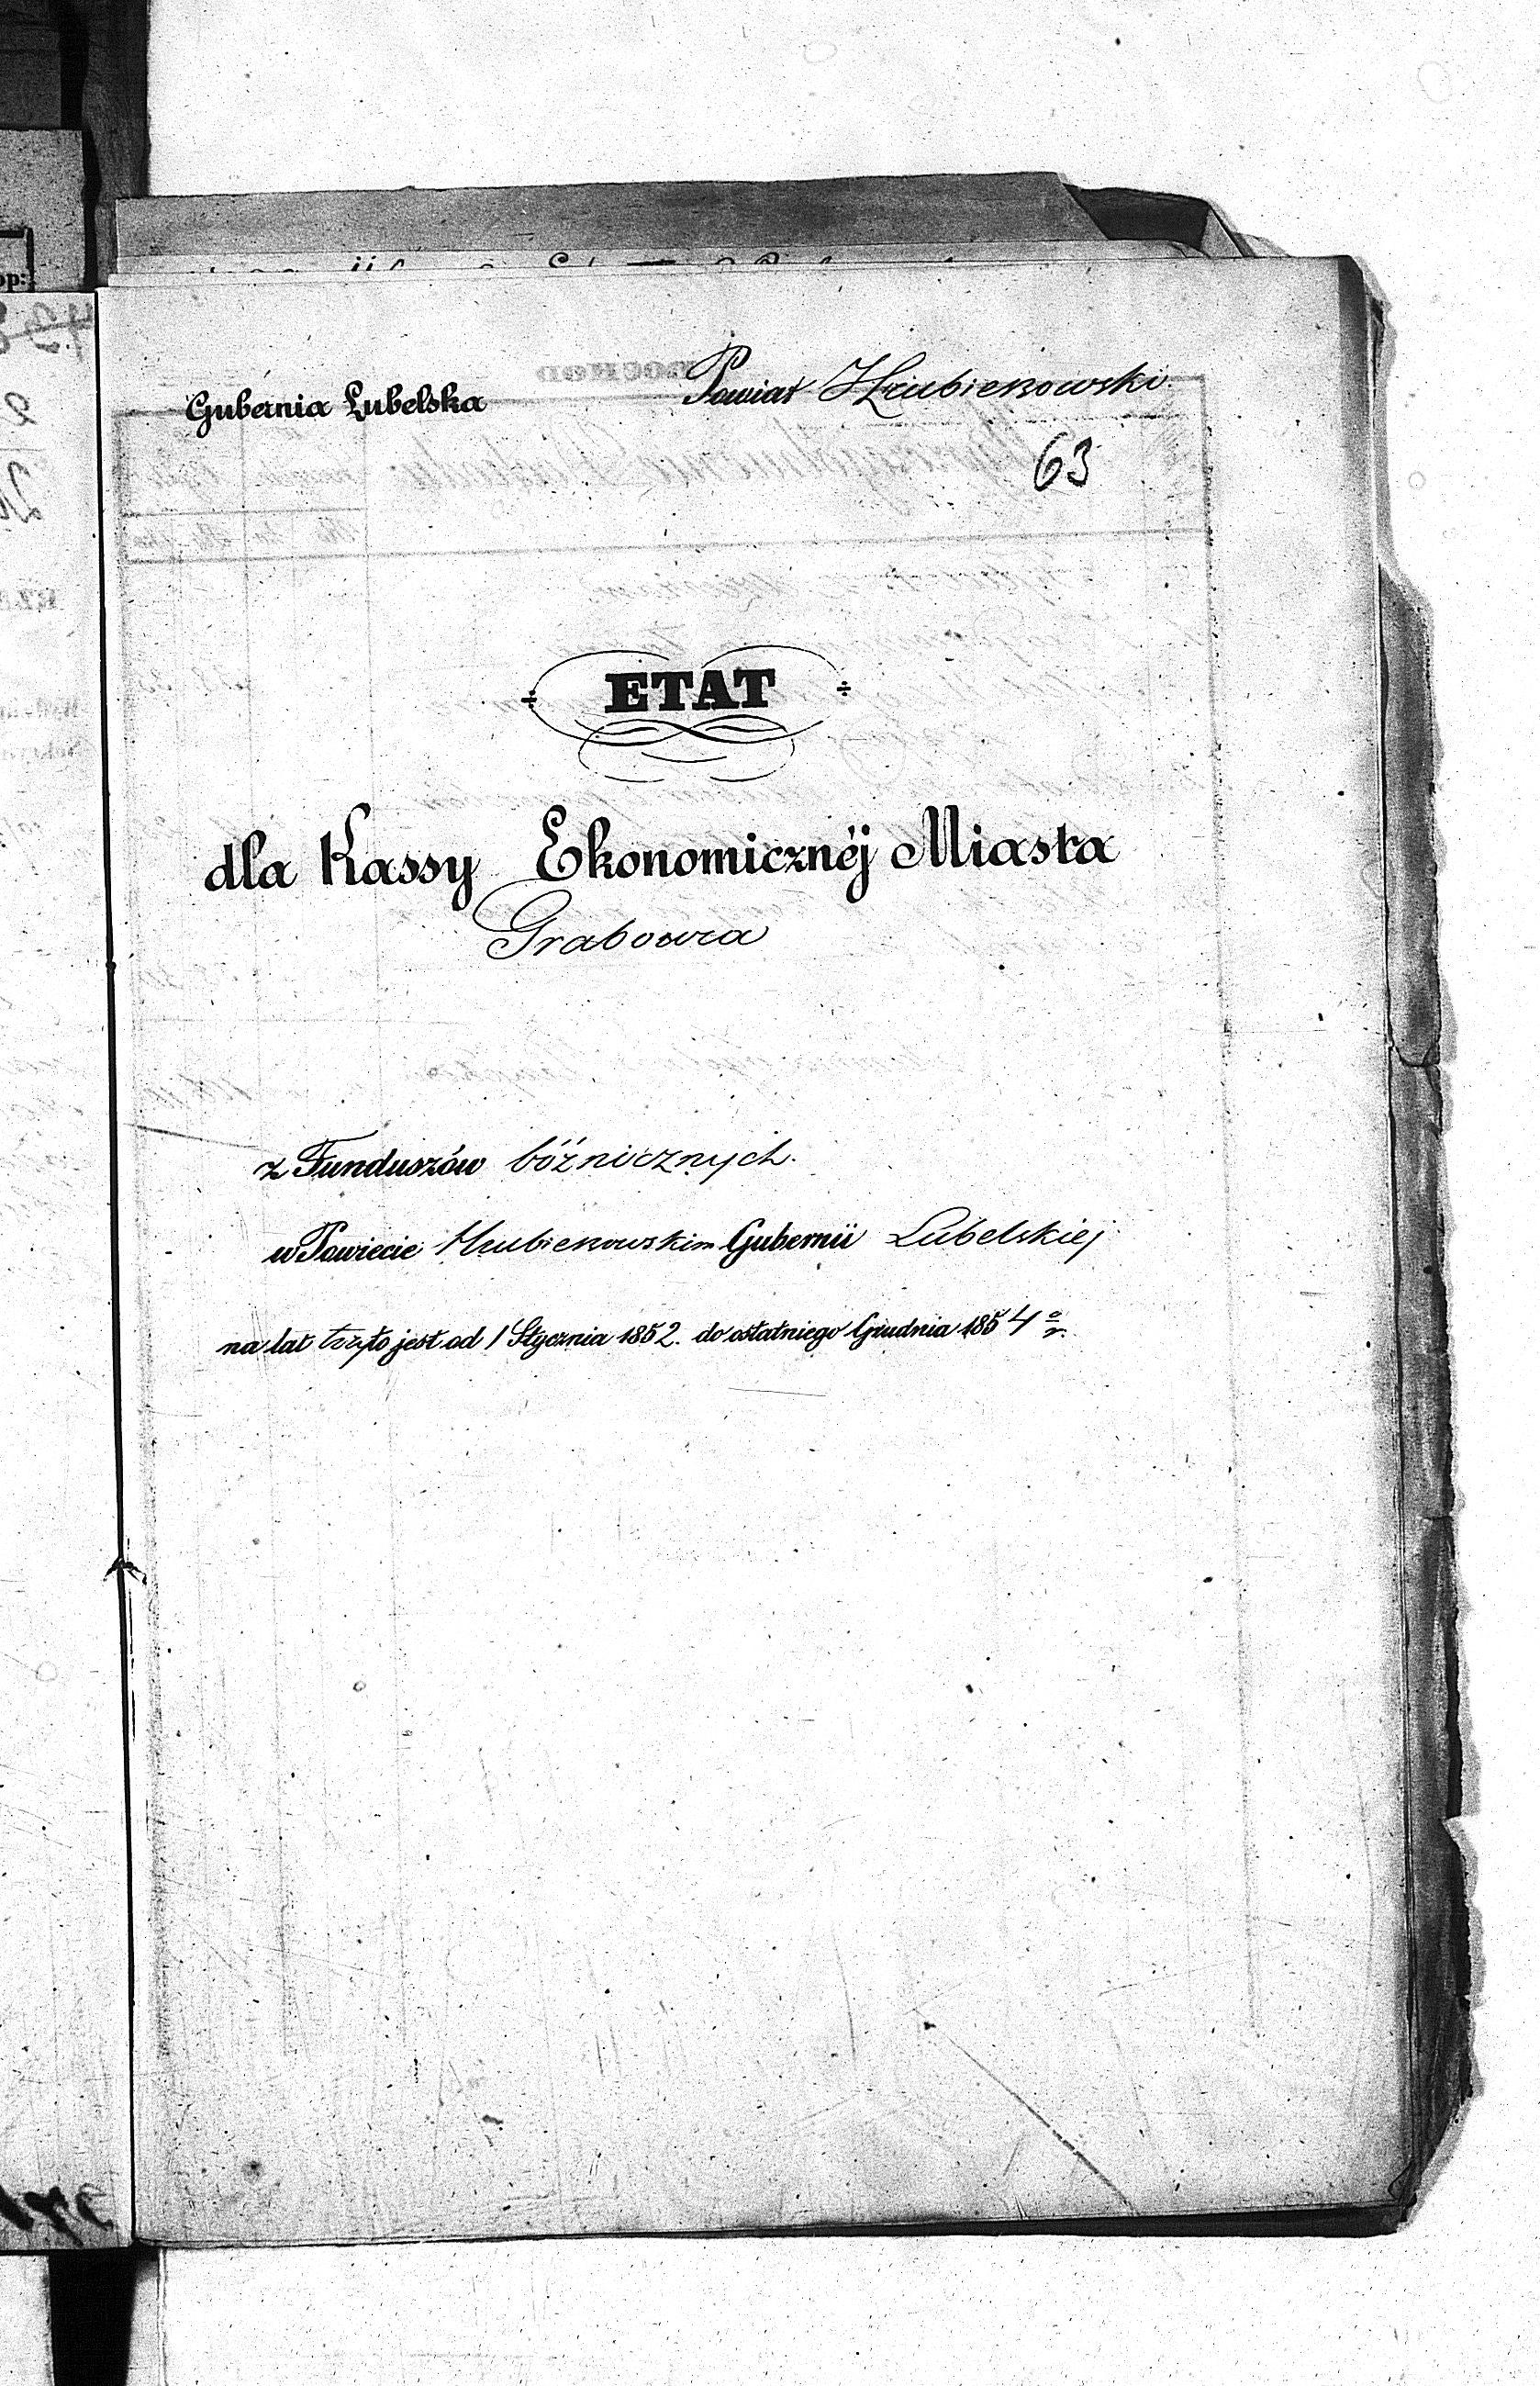 Gubernia Lubelska Powiat Hrubieszowski
63
ETAT
dla Kassy Ekonomicznéj Miasta
Grabowca
z Funduszów bóżnicznych.
w Powiecie Hrubieszowskim Gubernii Lubelskiej
na lat trzy to jest od 1 Stycznia 1852. do ostatniego Grudnia 1854 r.